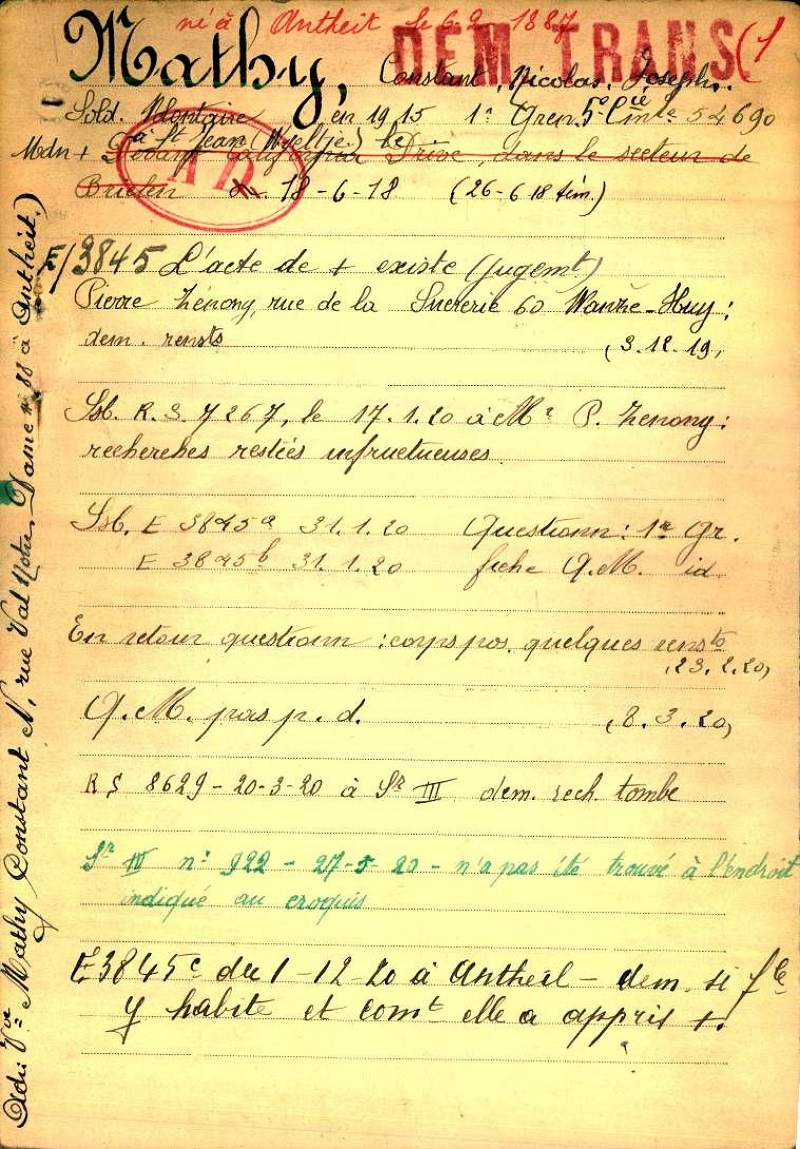 né à Antheit le 6.2.1887
DEM TRANS (1
Mathy, Constant, Nicolas, Joseph.
Sold. Volontaire en 1915 1r Gren. 5e Cie mle 54690
à St Jean (Wyeltje) le
Mdn + Devant California Drive, dans le secteur de
Brielen du 18-6-18 (26-6 18 tém.)
E/3845 L'acte de + existe (jugemt)
Pierre Zénony, rue de la Sucrerie 60 Wanze-Huy:
dem. rensts (3.12.19)
Ssb. R.S. 7267, le 17.1.20 à Mr P. Zenony:
recherches restées infructueuses
Ssb. E 3845a 31.1.20 Questionn: 1r Gr.
E 3845b 31.1.20 fiche Q.M. id
En retour questionn: corps pos. quelques rensts
(23.2.20)
Q.M. pas p. d. (8.3.20)
RS 8629-20-3-20 à Sr III dem. rech. tombe
Sr IV n° 922 - 27-5-20 - n'a pas été trouvé à l'endroit
indiqué au croquis
E3845c du 1-12-20 à Antheit - dem. si fle
y habite et comt elle a appris +.
Adr: Vve Mathy Constant N, rue Val Notre Dame n° 88 à Antheit.)